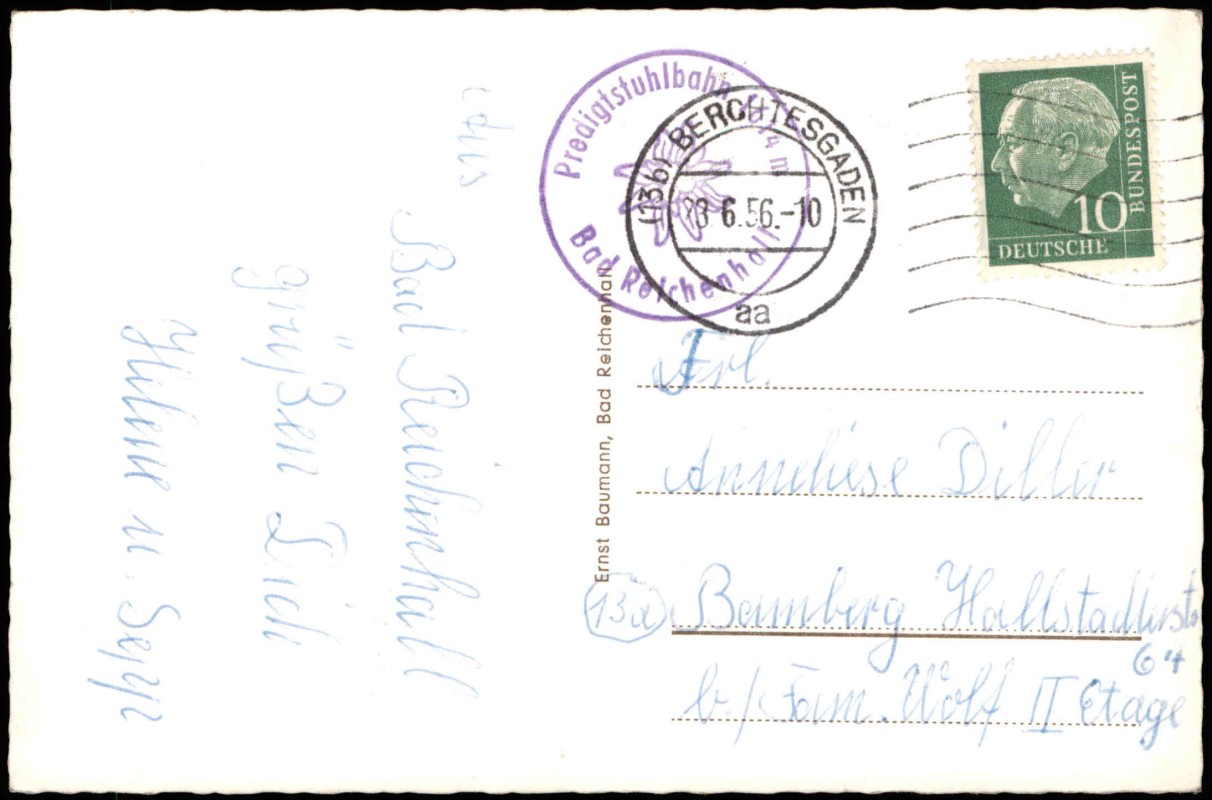 Aus
Bad Reichenhall
grüßen Dich
Helene u. Sepp
Predigtstuhlbahn 1614 m
Bad Reichenhall
(13b) BERCHTESGADEN
23.6.56.-10
aa
10
BUNDESPOST
DEUTSCHE
Ernst Baumann, Bad Reichenhall
Frl.
Anneliese Diller
13a Bamberg Hallstadterstr
64
b./Fam. Wolf II Etage